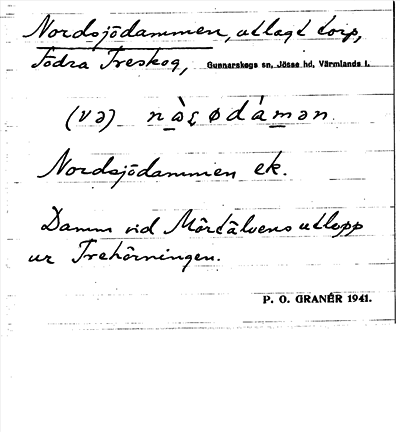 Nordsjödammen, utlagt torp,
Södra Treskog, Gunnarskogs sn, Jösse hd, Värmlands l.
(və) nὰʂødámən
Nordsjödammen ek.
Damm vid Mörtälvens utlopp
ur Trehörningen.
P. O. GRANÉR 1941.